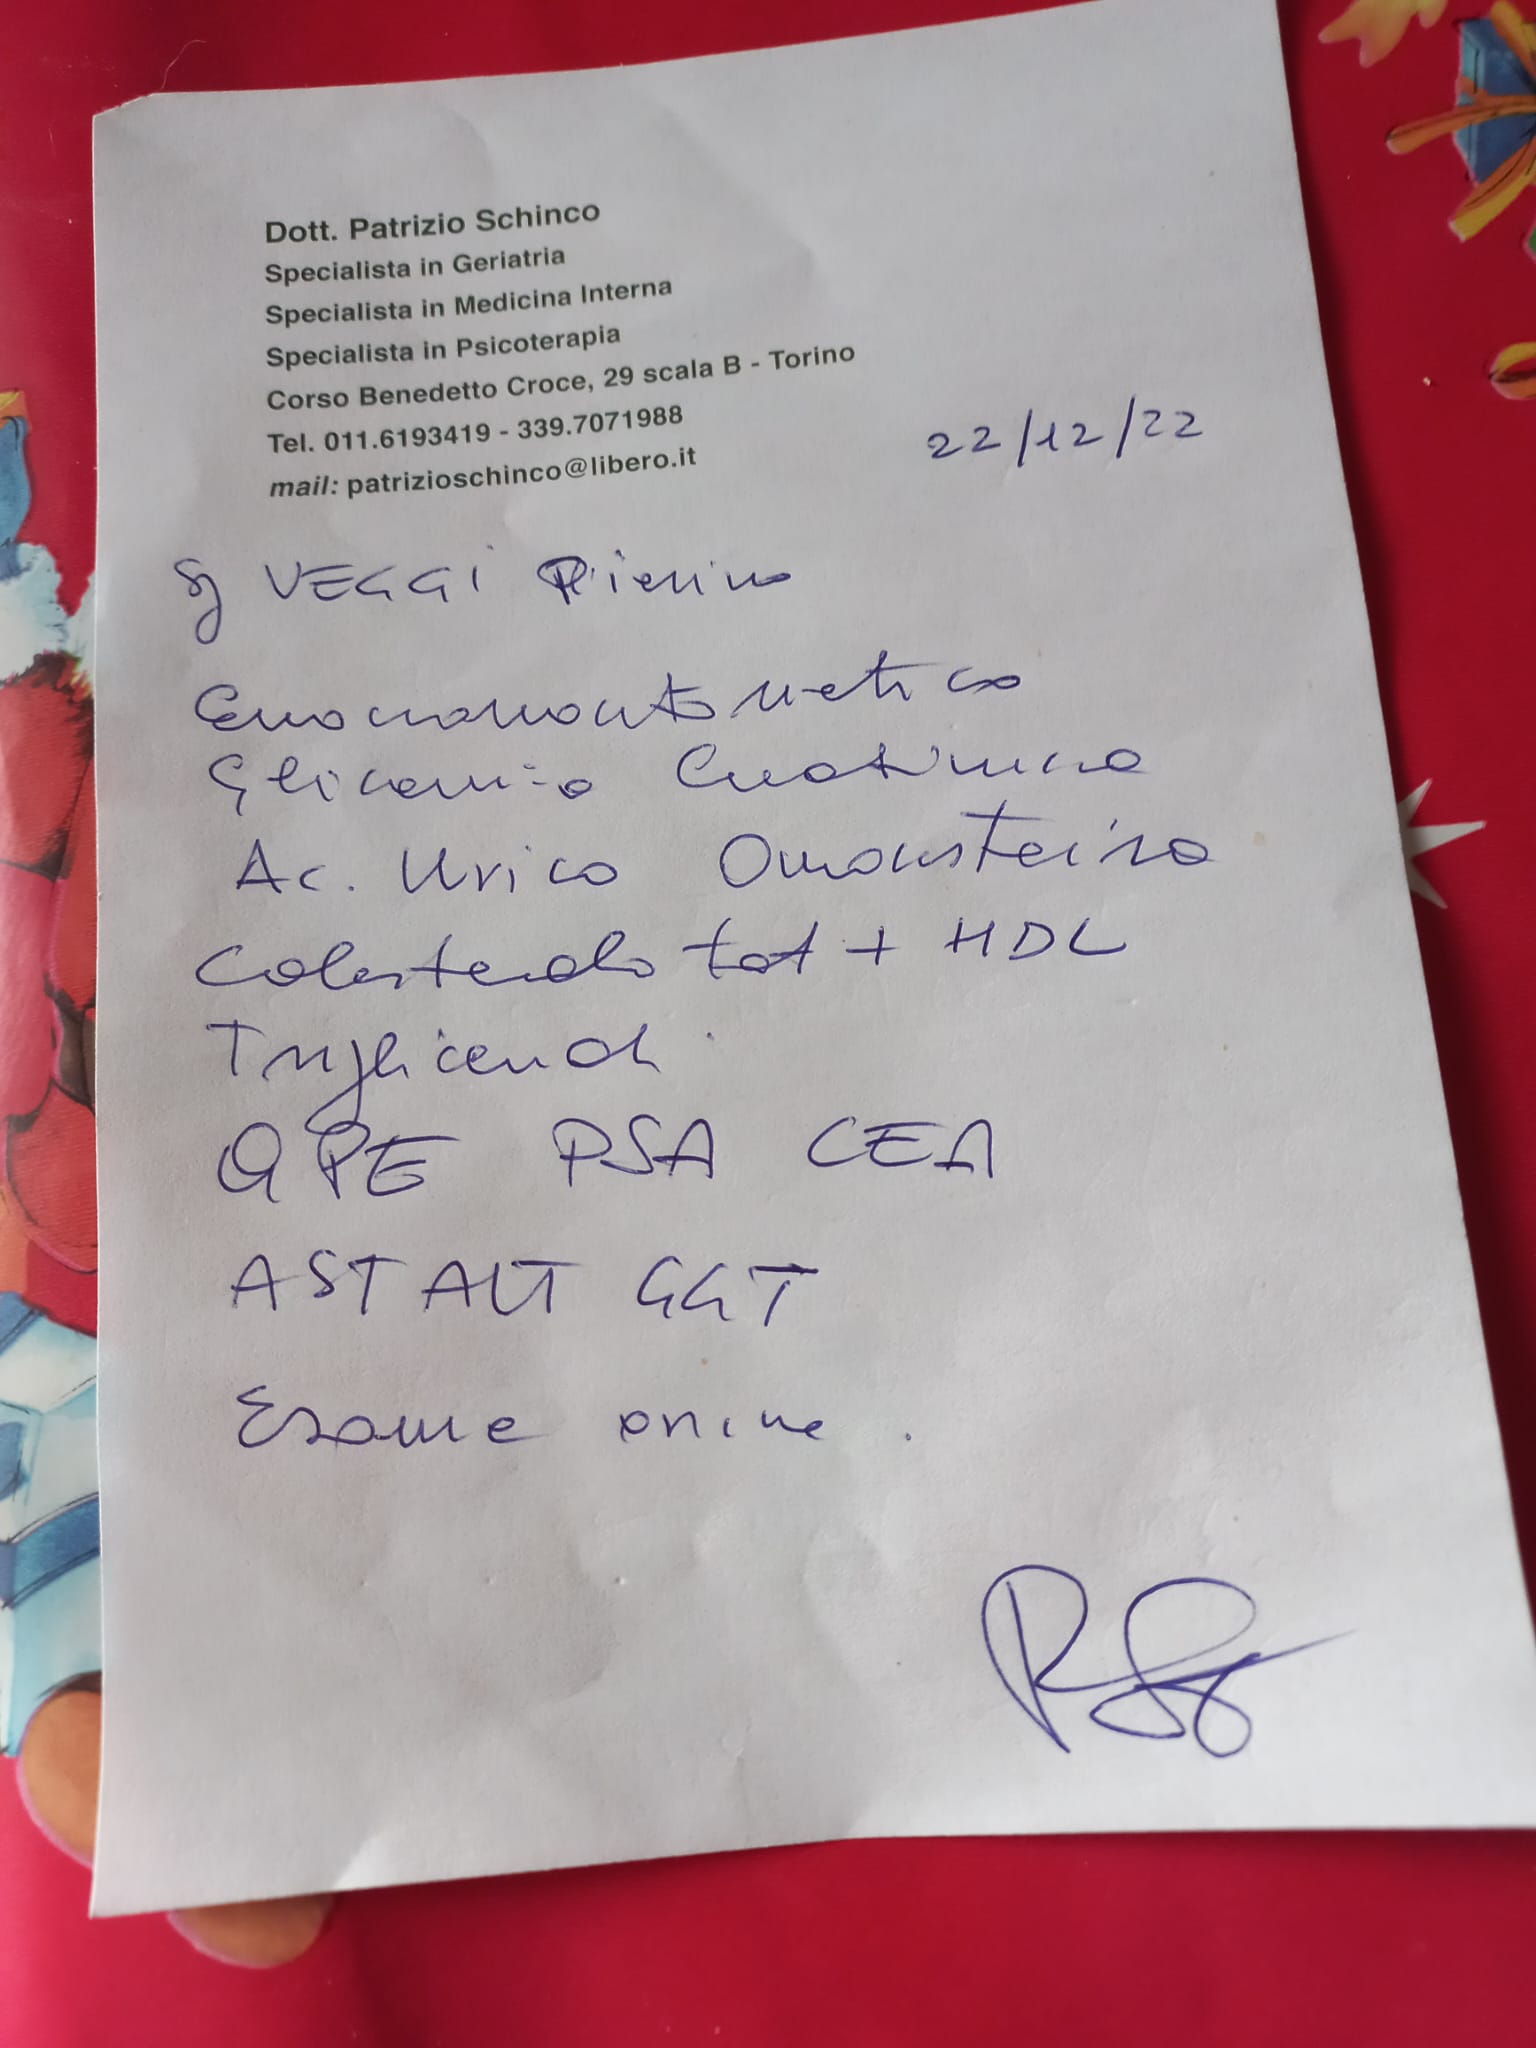 Dott. Patrizio Schinco
Specialista in Geriatria
Specialista in Medicina Interna
Specialista in Psicoterapia
Corso Benedetto Croce, 29 scala B - Torino
Tel. 011.6193419 - 339.7071988
mail: patrizioschinco@libero.it
22/12/22
Sg VEGGI Pierino
Emocromocitometrico
Glicemia Creatinina
Ac. Urico Omocisteina
Colesterolo tot + HDL
Trigliceridi
QPE PSA CEA
AST ALT GGT
Esame urine.